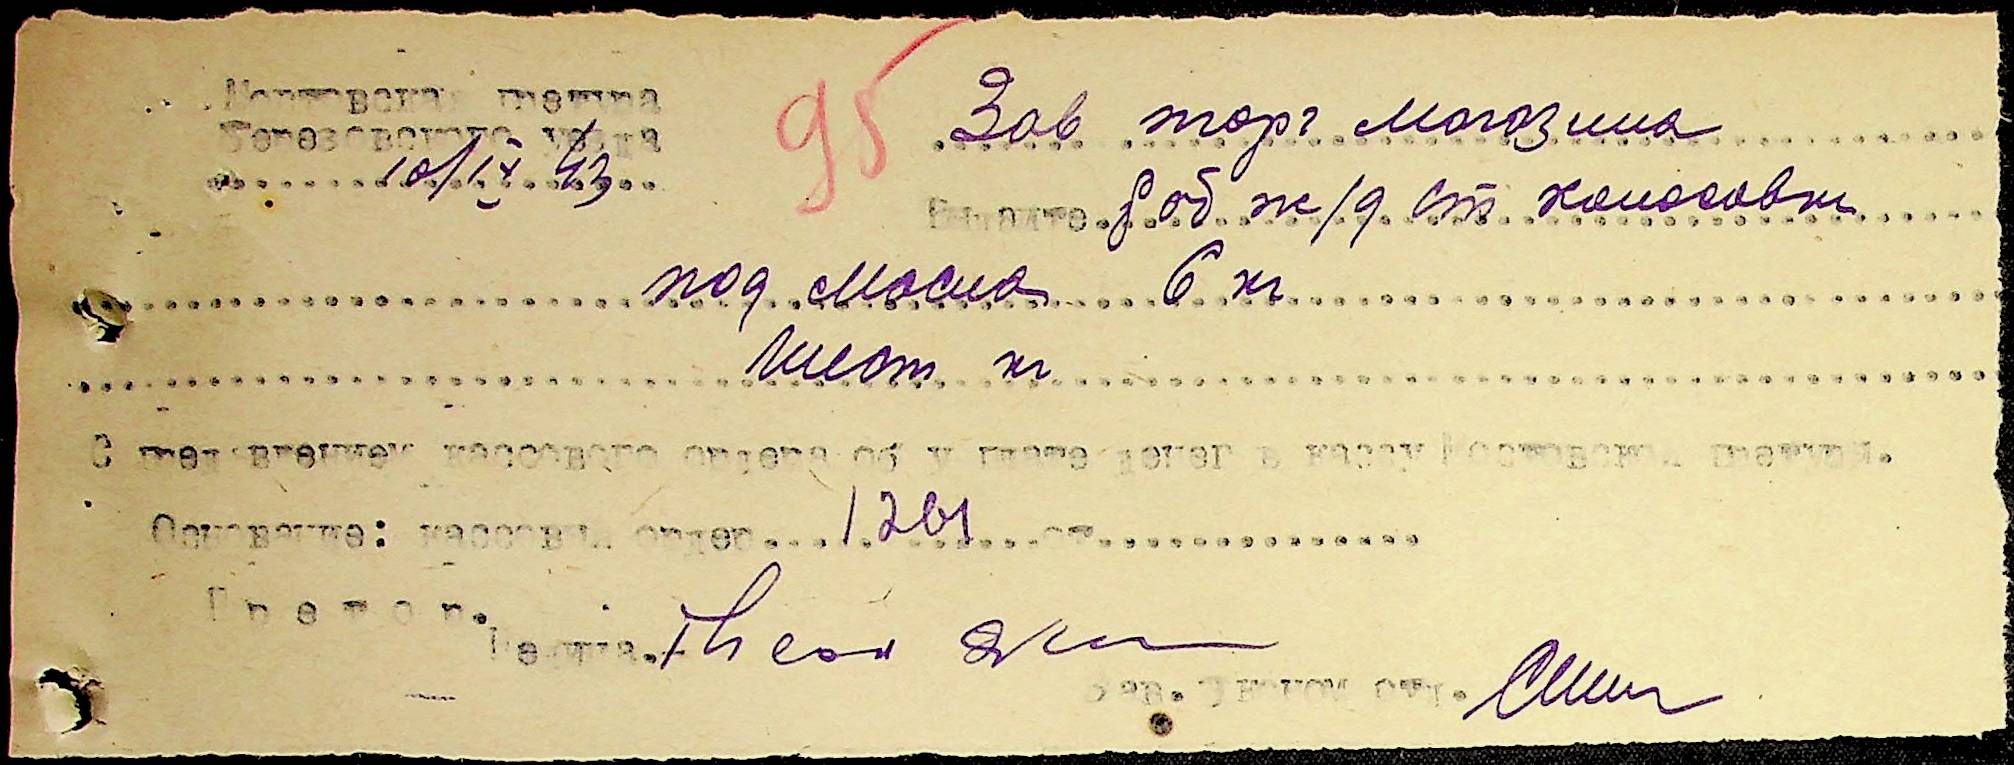 Мостовская претура
Березовского уезда
10/IX 43
95
Зав торг магозина
Выдайте Роб ж/д ст колосовки
под масла 6 кг
Шест кг
С пред влением кассового ордера об уплате денег в кассу Мостовской претуры.
Основание: кассовый ордер 1261 от
Претор.
Зав. Эконом отд.